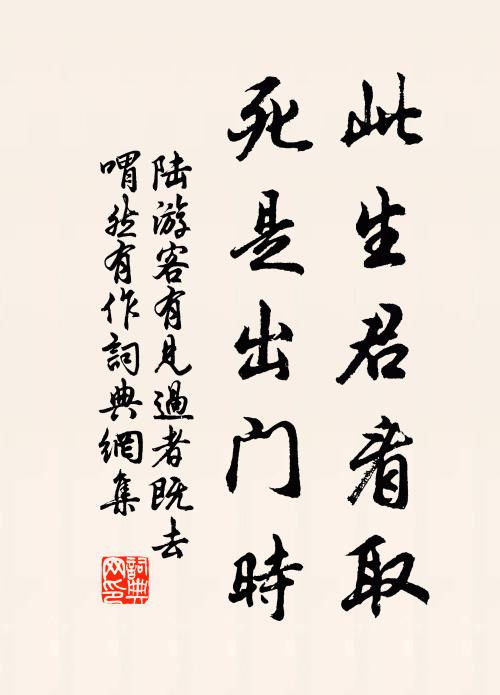 此生君看取
死是出门時
陆游客有見過者既去
喟然有作詞典網集
詞典
网印